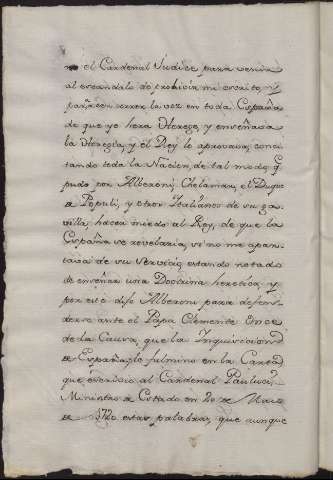 el Cardenal Judice para venir
al escandalo de prohivir mi escrito, y
para correr la voz en toda España
de que yo hera Herege, y enseñava
la Heregia, y el Rey lo aprovava, conci
tando toda la Nacion, de tal modo q
pudo con Alberoni, Chelamar, el Duque
de Populi, y otros Italianos de su ga
villa, hacer miedo al Rey, de que la
España se revelaria, si no me apar
tava de su servicio, estando notado
de enseñar una Doctrina heretica, y
por esto dijo Alberoni para defen
derse ante el Papa Clemente Once
de la Causa, que la Inquisicion
de España le fulmino en la Carta
que escrivio al Cardenal Pauluci
Ministro de Estado en 20 de Marzo
de 1720 estas palabras, que aunque